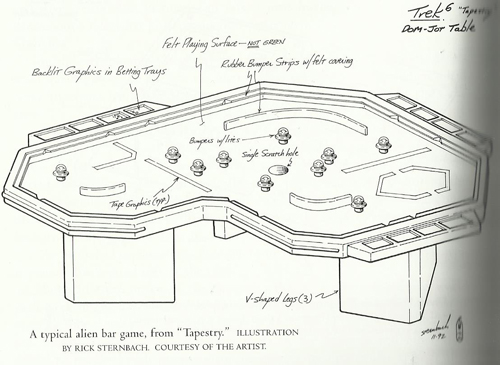 Trek⁶ "Tapestry"
DOM-JOT TABLE
Felt Playing Surface — NOT GREEN
Rubber Bumper Strips w/felt covering
Backlit Graphics in Betting Trays
Bumpers w/lites
Single Scratch hole
Tape Graphics (typ.)
V-shaped Legs (3)
sternbach
11.92
A typical alien bar game, from "Tapestry." ILLUSTRATION
BY RICK STERNBACH. COURTESY OF THE ARTIST.